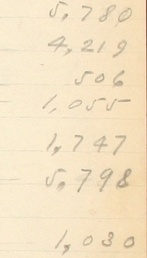 5,780
4,219
506
1,055
1,747
5,798
1,030